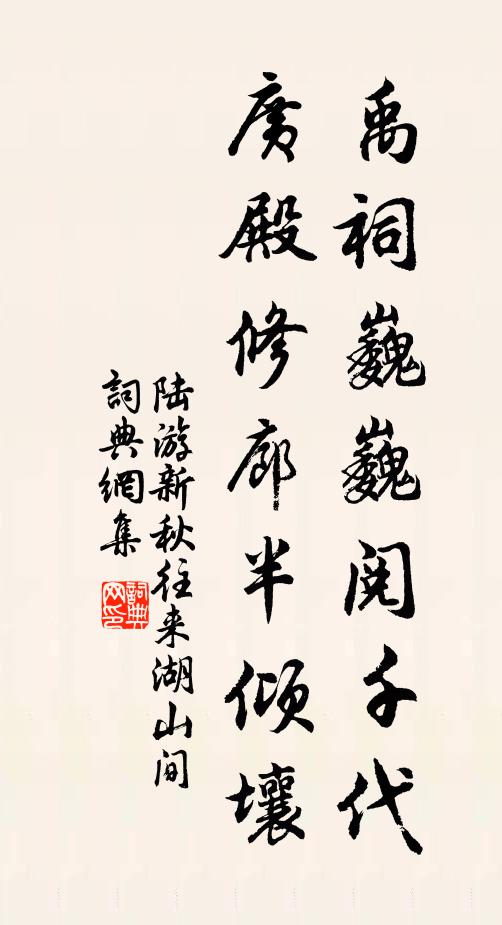 禹祠巍巍阅千代
广殿修廊半倾壤
陆游新秋往来湖山间
詞典網集
詞典网印